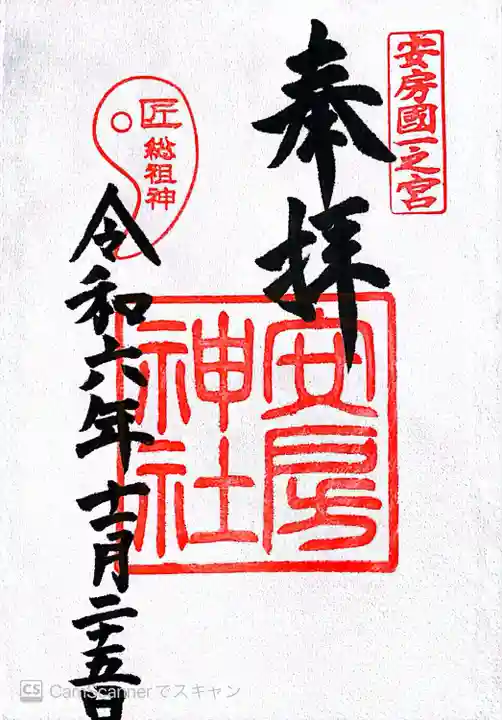 安房國一之宮
奉拝
安房
神社
匠
総祖神
令和六年十二月二十五日
CS CamScannerでスキャン